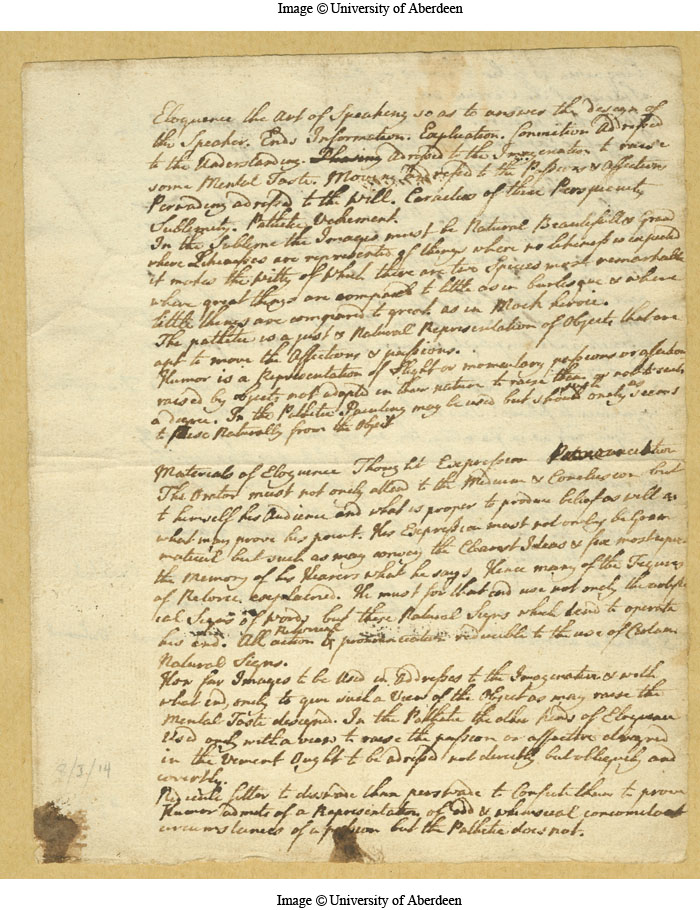 Image © University of Aberdeen
Eloquence the Art of Speaking so as to answer the design of
the Speaker. Ends Information. Explication. Conviction adressed
to the Understanding. Pleasing adressed to the Imagination to raise
some Mental Taste. Moving adressed to the Passions & Affections
Perswading adressed to the Will. Caracters of these Perspicuity
Sublimity. Pathetic Vehement.
In the Sublime the Images must be Natural Beautifull & Grand
where Likenesses are represented of things where no likeness is expected
it makes the Witty of Which there are two Spices most remarkable
where great things are compared to little as in burlesque & where
little things are compared to great as in Mock heroic.
The pathetic is a just & Natural Representation of Objects that are
apt to move the Affections & passions.
Humor is a Representation of slight or momentary passions or affections
raised by objects not adapted in their nature to raise them or not to such
a degree. In the Pathetic Painting may be used but should only such as seems
to rise Naturally from the Object
Materials of Eloquence Thought Expression Pronunciation
The Orator must not onely attend to the Medium & Conclusion but
to himself his Audience and what is proper to produce belief as well as
what may prove his point. His Expression must not onely be Gram
matical but such as may convey the Clearest Ideas & fix most upon
the Memory of his Hearers what he says, Hence many of the Figures
of Retoric explained. He must for that end use not onely the artific
ial Signs of Words but these Natural Signs which tend to operate
his end. All Rhetorical action & pronunciation reducible to the use of Certain
Natural Signs.
How far Images to be Used in addresses to the Imagination & with
what end, onely to give such a View of the Object as may raise the
Mental Taste designed. In the Pathetic the other kinds of Eloquence
Used only with a view to raise the passion or affection designed
in the Vement Ought to be adressed not directly but obliquely and
covertly.
Ridicule fitter to disswade than perswade to Confute than to prove
Humor admits of a Representation of odd & whimsical concomitant
circumstances of a passion but the Pathetic does not.
3/1/14
Image © University of Aberdeen